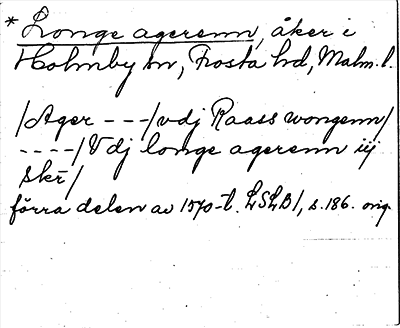 * Longe agerenn, åker i
Holmby sn, Frosta hd, Malm. l.
/Ager - - -/vdj Raass wongenn/
- - - -/Vdj longe agerenn iij
skr̄/
förra delen av 1570-t. LSLB1, s. 186. orig.